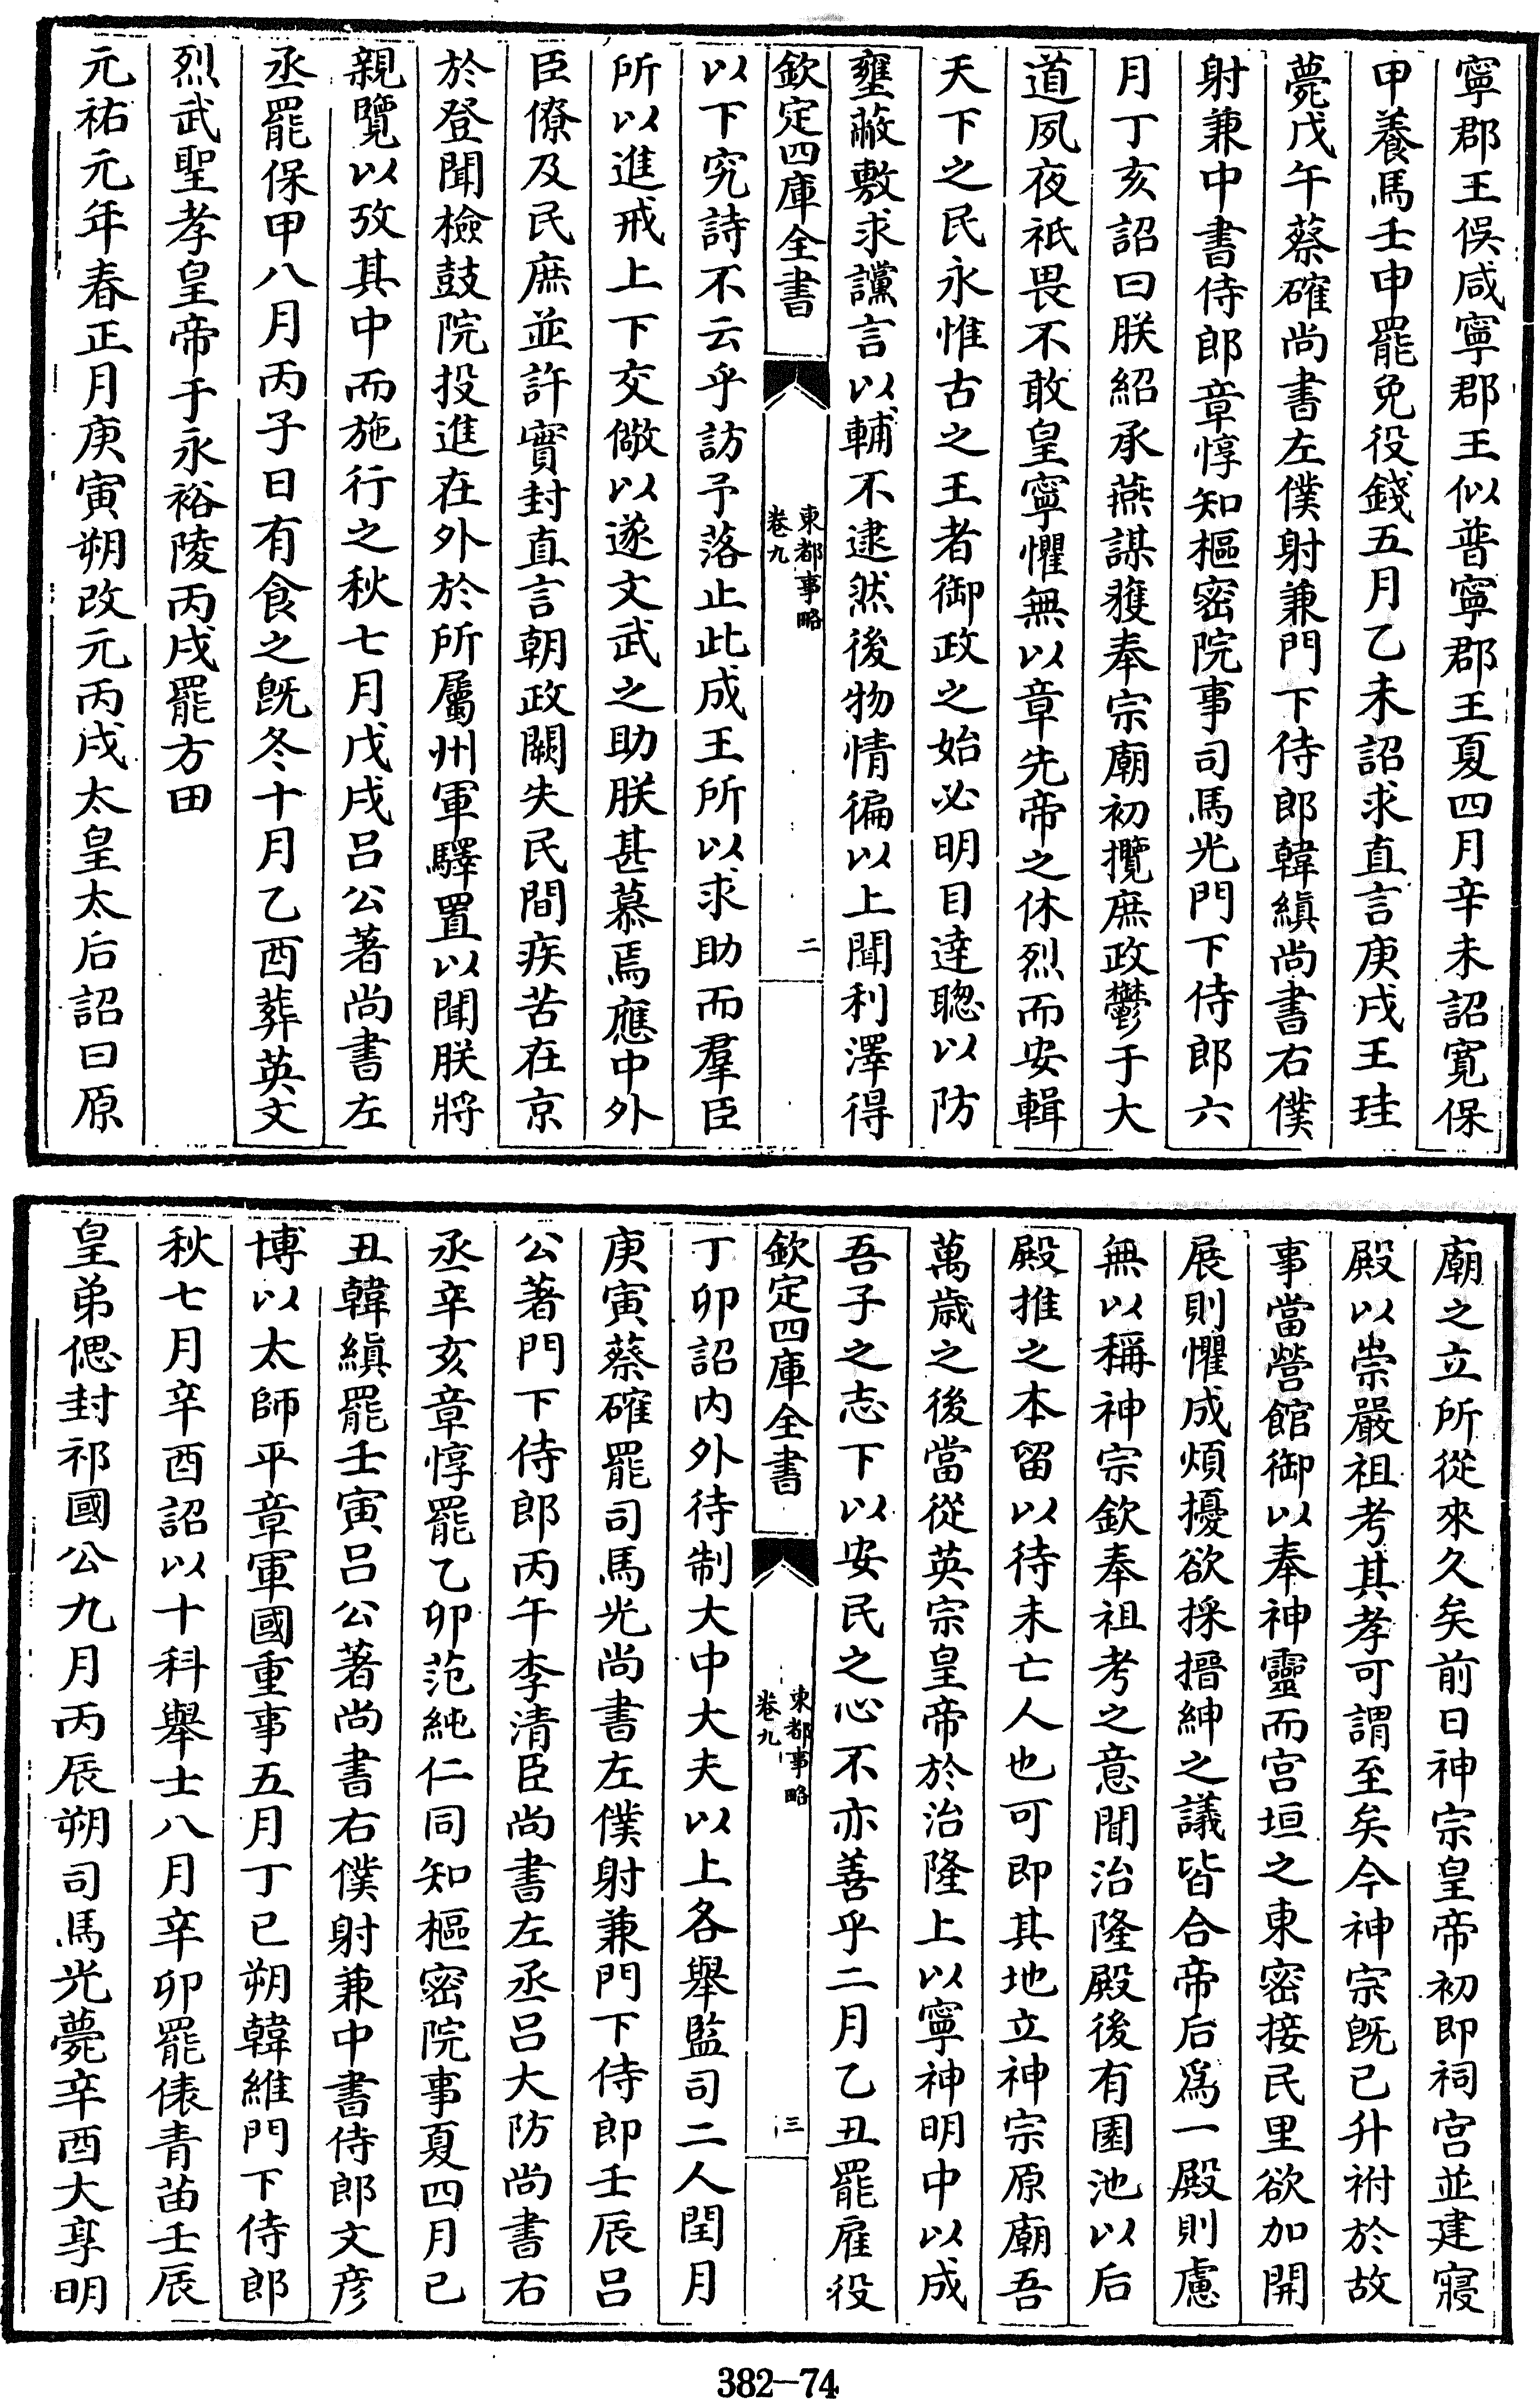 寧郡王俁咸寧郡王似普寧郡王夏四月辛未詔寛保
甲養馬壬申罷免役錢五月乙未詔求直言庚戌王珪
薨戊午蔡確尚書左僕射兼門下侍郎韓縝尚書右僕
射兼中書侍郎章惇知樞密院事司馬光門下侍郎六
月丁亥詔曰朕紹承燕謀獲奉宗廟初攬庶政鬱于大
道夙夜祇畏不敢皇寧懼無以章先帝之休烈而安輯
天下之民永惟古之王者御政之始必明目達聰以防
壅蔽敷求讜言以輔不逮然後物情徧以上聞利澤得
欽定四庫全書
東都事略
卷九
二
以下究詩不云乎訪予落止此成王所以求助而羣臣
所以進戒上下交儆以遂文武之助朕甚慕焉應中外
臣僚及民庶並許實封直言朝政闕失民間疾苦在京
於登聞檢鼓院投進在外於所屬州軍驛置以聞朕將
親覽以攷其中而施行之秋七月戊戌吕公著尚書左
丞罷保甲八月丙子日有食之既冬十月乙酉葬英文
烈武聖孝皇帝于永裕陵丙戌罷方田
元祐元年春正月庚寅朔改元丙戌太皇太后詔曰原
廟之立所從來久矣前日神宗皇帝初即祠宫並建寢
殿以崇嚴祖考其孝可謂至矣今神宗既已升祔於故
事當營館御以奉神靈而宫垣之東密接民里欲加開
展則懼成煩擾欲採搢紳之議皆合帝后爲一殿則慮
無以稱神宗欽奉祖考之意聞治隆殿後有園池以后
殿推之本留以待未亡人也可即其地立神宗原廟吾
萬歳之後當從英宗皇帝於治隆上以寧神明中以成
吾子之志下以安民之心不亦善乎二月乙丑罷雇役
欽定四庫全書
東都事略
卷九
三
丁卯詔内外待制大中大夫以上各舉監司二人閏月
庚寅蔡確罷司馬光尚書左僕射兼門下侍郎壬辰吕
公著門下侍郎丙午李清臣尚書左丞吕大防尚書右
丞辛亥章惇罷乙卯范純仁同知樞密院事夏四月己
丑韓縝罷壬寅吕公著尚書右僕射兼中書侍郎文彦
博以太師平章軍國重事五月丁巳朔韓維門下侍郎
秋七月辛酉詔以十科舉士八月辛卯罷俵青苗壬辰
皇弟偲封祁國公九月丙辰朔司馬光薨辛酉大享明
382-74